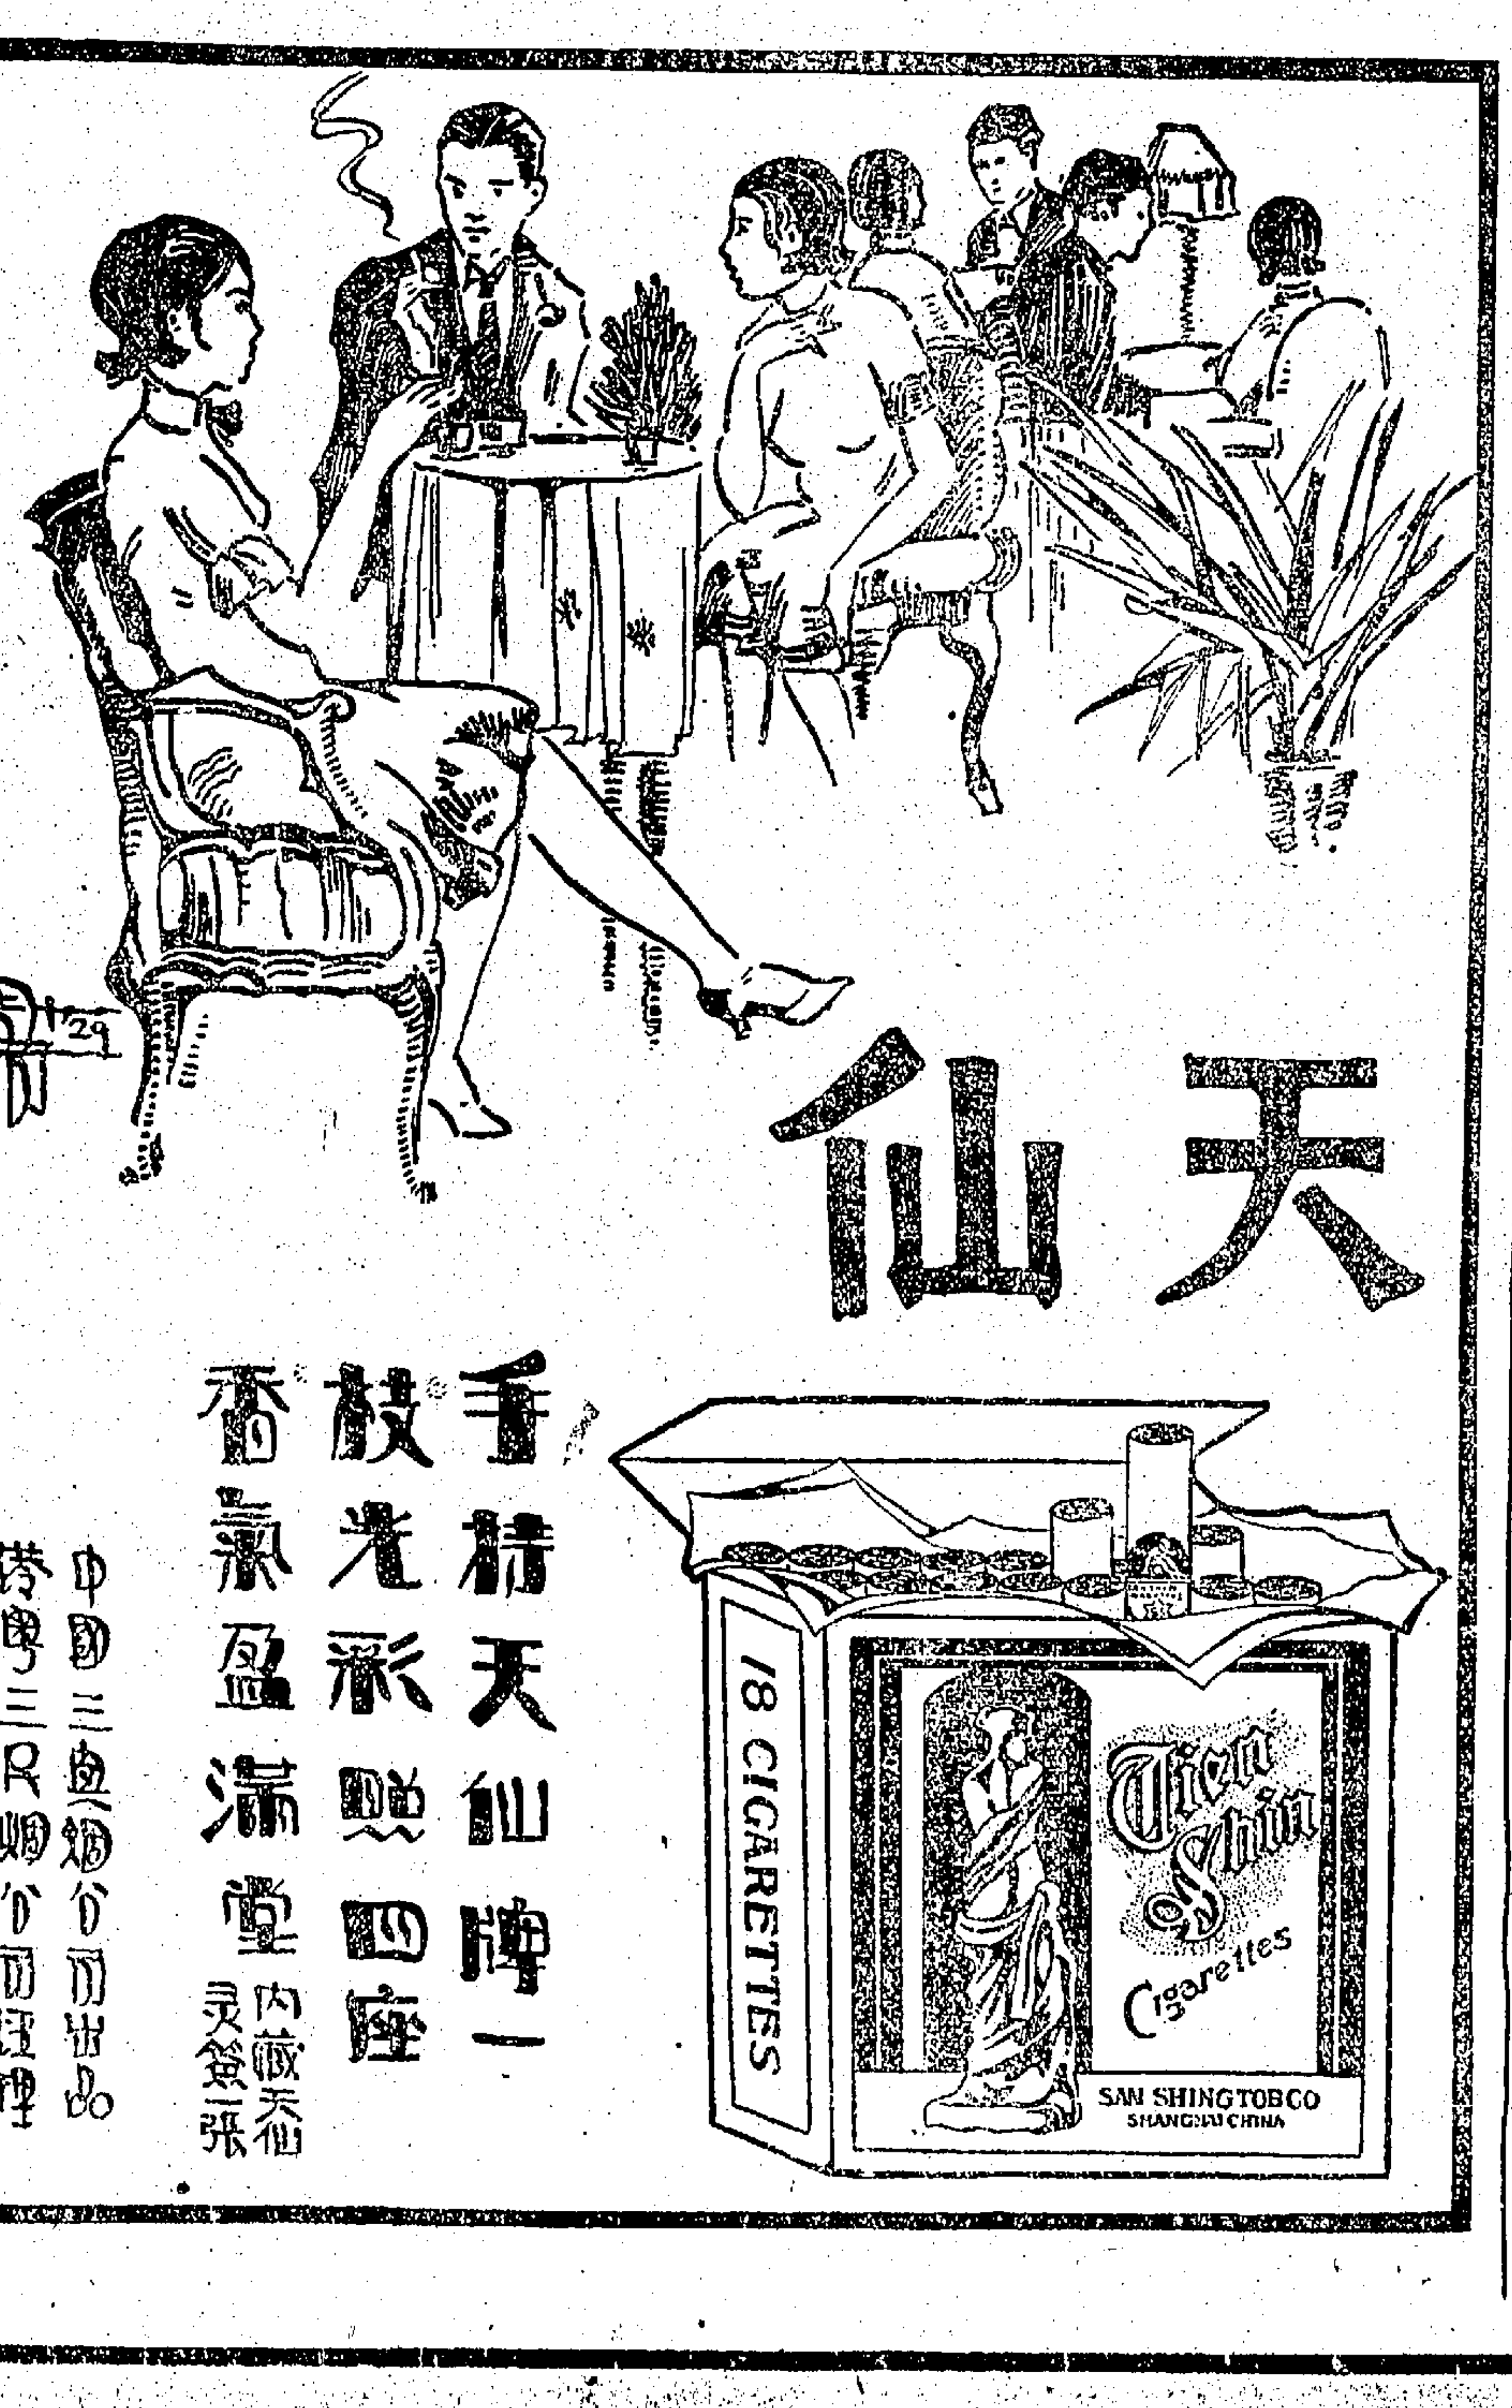 天仙
手持天仙牌一
枝光彩照四座
香氣盈滿堂
內藏天仙
灵簽一張
中國三興烟公司出品
港粵三烟公司經理
29
18 CIGARETTES
Tien
Shin
Cigarettes
SAN SHING TOB CO
SHANGHAI CHINA